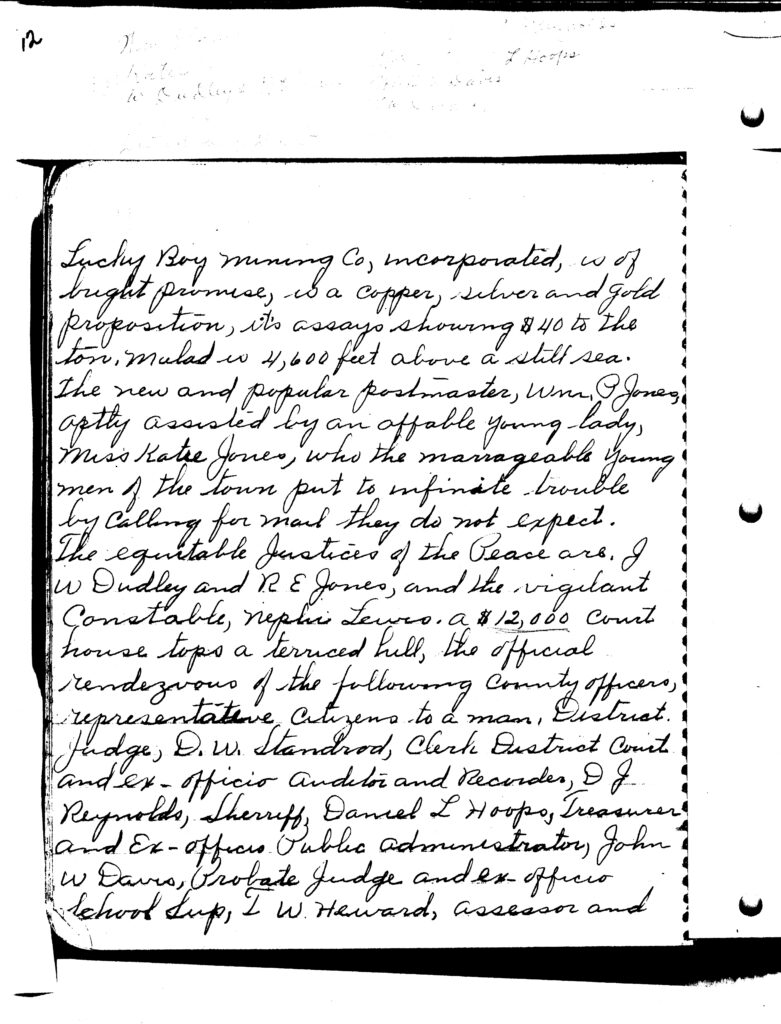 12
L Hoops
W Dudley
Lucky Boy mining Co, incorporated, is of
bright promise, is a copper, silver and gold
proposition, it's assays showing $40 to the
ton. Malad is 4,600 feet above a still sea.
The new and popular postmaster, Wm. P Jones,
aptly assisted by an affable young lady,
Miss Katie Jones, who the marrageable young
men of the town put to infinite trouble
by calling for mail they do not expect.
The equitable Justices of the Peace are. J
W Dudley and R E Jones, and the vigilant
Constable, Nephi Lewis. a $12,000 Court
house tops a terriced hill, the official
rendezvous of the following County officers,
representative citizens to a man. District
Judge, D. W. Standrod, Clerk District Court
and ex-officio Auditor and Recorder, D J
Reynolds, Sherriff, Daniel L Hoops, Treasurer
and Ex-officio Public administrator, John
W Davis, Probate Judge and ex-officio
School Sup, I W. Heward, assessor and